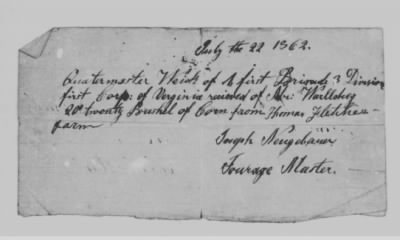 July the 22 1862.
Quatermaster Welch of A first Brigade 3 Division
first Corps of Virginia recieved of Mr: Walloby
20 twenty Bushel of Corn from Thomas
farm
Joseph Neugebauer
Fourage Master.